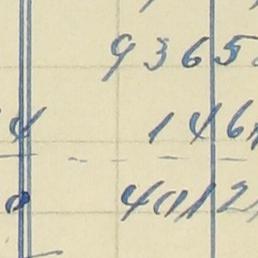 9365
4 146
0 4012